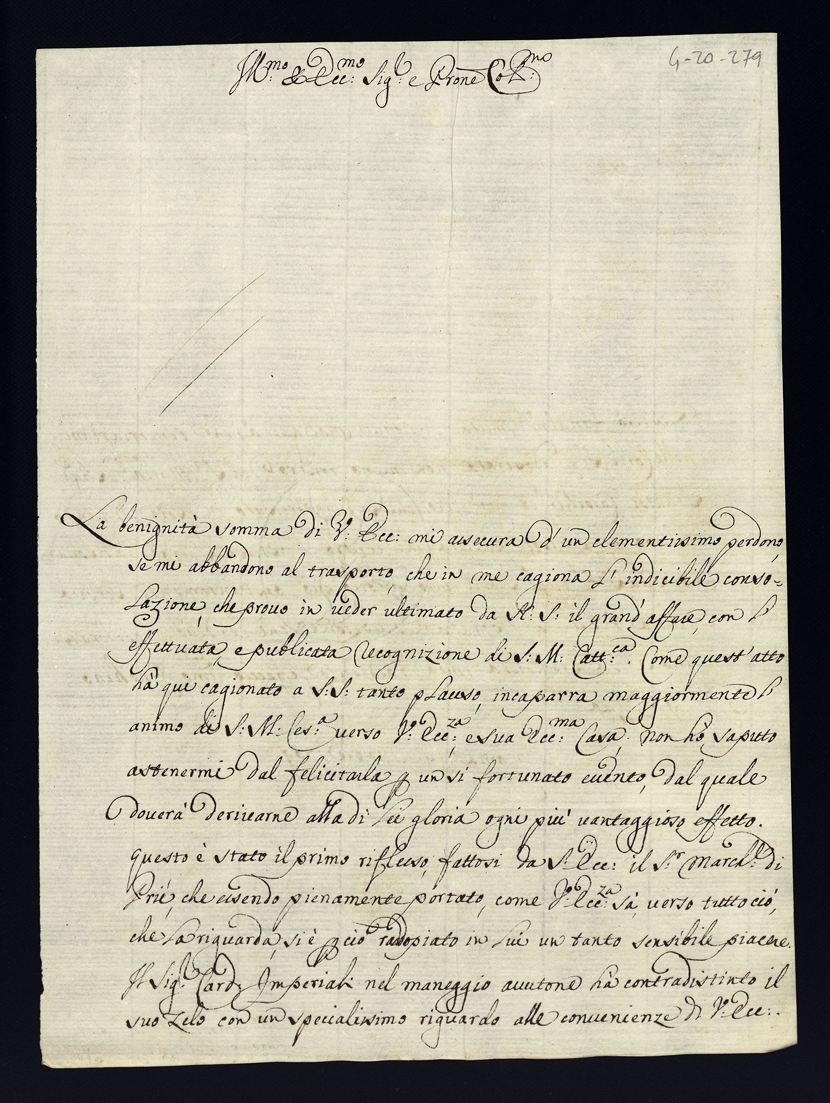 Ill.mo & Ecc:mo Sig.r e Prone Col.mo
4-20-279
La benignità somma di V.ª Ecc: mi assecura d'un clementissimo perdono,
se mi abbandono al trasporto, che in me cagiona l'indicibile conso=
lazione, che provo in veder ultimato da N: S: il grand'affare, con l'
effettuata, e publicata recognizione di S: M: Catt:ca. Come quest'atto
hà qui cagionato a S: S: tanto plauso, incaparra maggiormente l'
animo di S: M: Ces:a verso V:ª Ecc:za, e sua Ecc:ma Casa; non hò saputo
astenermi dal felicitarla p un si fortunato evento, dal quale
doverà derivarne alla di Lei gloria ogni più vantaggioso effetto.
questo è stato il primo riflesso, fattosi da S: Ecc: il S:r March:e di
Prié, che essendo pienamente portato, come V:ª Ecc:za sà, verso tutto ciò,
che La riguarda, si è p ciò radopiato in Lui un tanto sensibile piacere.
Il Sig:r Card: Imperiali nel maneggio avutone hà contradistinto il
suo zelo con un specialissimo riguardo alle convenienze di V:ª Ecc:.